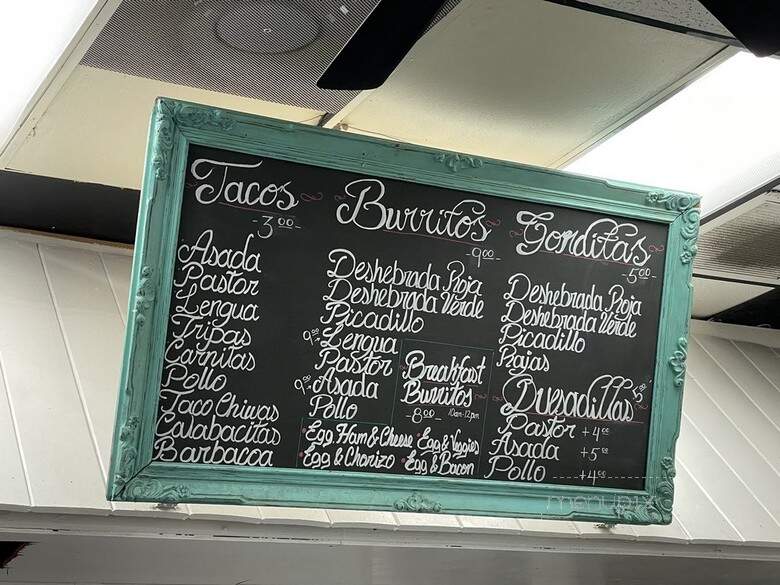 Tacos
-3.00-
Asada
Pastor
Lengua
Tripas
Carnitas
Pollo
Taco Chivas
Calabacitas
Barbacoa
Burritos
-9.00-
Deshebrada Roja
Deshebrada Verde
Picadillo
Lengua
Pastor
Asada
Pollo
Breakfast
Burritos
-8.00- 10am-12pm
Egg Ham & Cheese Egg & Veggies
Egg & Chorizo Egg & Bacon
Gorditas
-5.00-
Deshebrada Roja
Deshebrada Verde
Picadillo
Rajas
Quesadillas
Pastor +4.00
Asada +5.00
Pollo +4.00
menupix